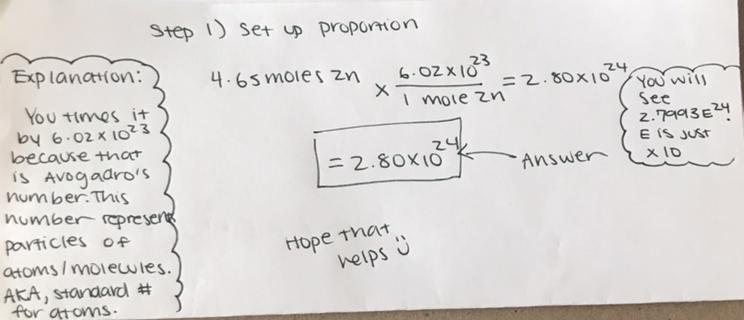 Step 1) Set up proportion
Explanation:
You times it
by 6.02 x 10²³
because that
is Avogadro's
number. This
number represents
particles of
atoms/molecules.
AKA, standard #
for atoms.
4.65 moles Zn x 6.02 x 10²³ / 1 mole Zn = 2.80 x 10²⁴
= 2.80 x 10²⁴ ← Answer
You will
see
2.7993E²⁴!
E is just
x 10
Hope that
helps :)